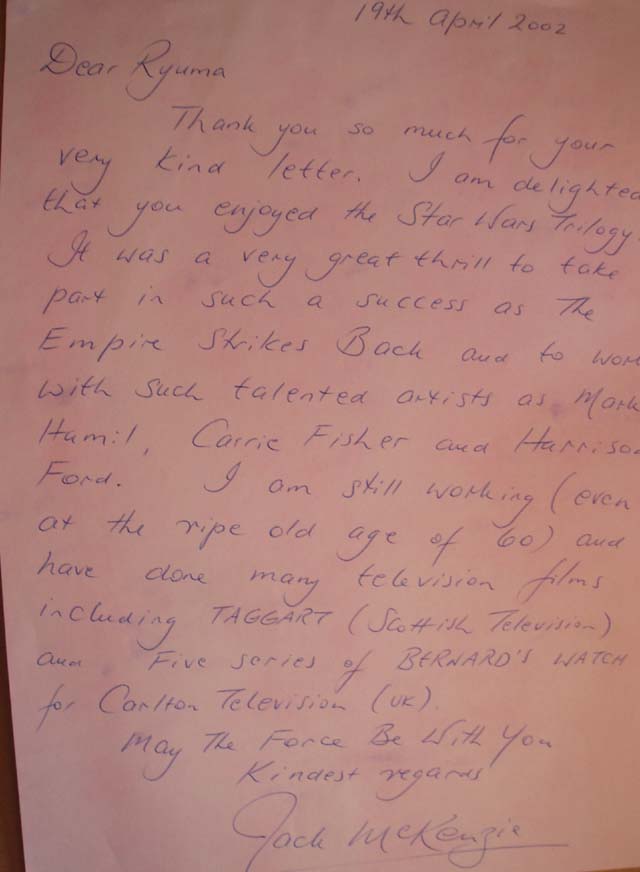 19th April 2002
Dear Ryuma
Thank you so much for your
very kind letter. I am delighted
that you enjoyed the Star Wars Trilogy.
It was a very great thrill to take
part in such a success as The
Empire Strikes Back and to work
with such talented artists as Mark
Hamil, Carrie Fisher and Harrison
Ford. I am still working (even
at the ripe old age of 60) and
have done many television films
including TAGGART (Scottish Television)
and Five series of BERNARD'S WATCH
for Carlton Television (UK).
May The Force Be With You
Kindest regards
Jack McKenzie